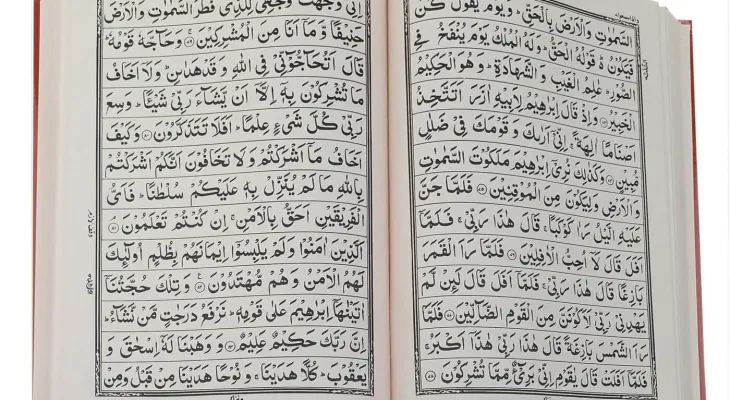 السَّمٰوٰتِ وَالْاَرْضَ بِالْحَقِّ ؕ وَيَوْمَ يَقُوْلُ كُنْ
فَيَكُوْنُ ۬ؕ قَوْلُهُ الْحَقُّ ؕ وَلَهُ الْمُلْكُ يَوْمَ يُنْفَخُ فِي
الصُّوْرِ ؕ عٰلِمُ الْغَيْبِ وَالشَّهَادَةِ ؕ وَهُوَ الْحَكِيْمُ
الْخَبِيْرُ ۝ وَاِذْ قَالَ اِبْرٰهِيْمُ لِاَبِيْهِ اٰزَرَ اَتَتَّخِذُ
اَصْنَامًا اٰلِهَةً ۚ اِنِّيْۤ اَرٰىكَ وَقَوْمَكَ فِيْ ضَلٰلٍ
مُّبِيْنٍ ۝ وَكَذٰلِكَ نُرِيْۤ اِبْرٰهِيْمَ مَلَكُوْتَ السَّمٰوٰتِ
وَالْاَرْضِ وَلِيَكُوْنَ مِنَ الْمُوْقِنِيْنَ ۝ فَلَمَّا جَنَّ
عَلَيْهِ الَّيْلُ رَاٰ كَوْكَبًا ۚ قَالَ هٰذَا رَبِّيْ ۚ فَلَمَّاۤ
اَفَلَ قَالَ لَاۤ اُحِبُّ الْاٰفِلِيْنَ ۝ فَلَمَّا رَاَ الْقَمَرَ
بَازِغًا قَالَ هٰذَا رَبِّيْ ۚ فَلَمَّاۤ اَفَلَ قَالَ لَئِنْ لَّمْ
يَهْدِنِيْ رَبِّيْ لَاَكُوْنَنَّ مِنَ الْقَوْمِ الضَّآلِّيْنَ ۝ فَلَمَّا
رَاَ الشَّمْسَ بَازِغَةً قَالَ هٰذَا رَبِّيْ هٰذَاۤ اَكْبَرُ ۚ
فَلَمَّاۤ اَفَلَتْ قَالَ يٰقَوْمِ اِنِّيْ بَرِيْٓءٌ مِّمَّا تُشْرِكُوْنَ ۝
اِنِّيْ وَجَّهْتُ وَجْهِيَ لِلَّذِيْ فَطَرَ السَّمٰوٰتِ وَالْاَرْضَ
حَنِيْفًا وَّمَاۤ اَنَا مِنَ الْمُشْرِكِيْنَ ۝ وَحَآجَّهٗ قَوْمُهٗ ؕ
قَالَ اَتُحَآجُّوْٓنِّيْ فِي اللّٰهِ وَقَدْ هَدٰىنِ ؕ وَلَاۤ اَخَافُ
مَا تُشْرِكُوْنَ بِهٖۤ اِلَّاۤ اَنْ يَّشَآءَ رَبِّيْ شَيْئًا ؕ وَسِعَ
رَبِّيْ كُلَّ شَيْءٍ عِلْمًا ؕ اَفَلَا تَتَذَكَّرُوْنَ ۝ وَكَيْفَ
اَخَافُ مَاۤ اَشْرَكْتُمْ وَلَا تَخَافُوْنَ اَنَّكُمْ اَشْرَكْتُمْ
بِاللّٰهِ مَا لَمْ يُنَزِّلْ بِهٖ عَلَيْكُمْ سُلْطٰنًا ؕ فَاَيُّ
الْفَرِيْقَيْنِ اَحَقُّ بِالْاَمْنِ ۚ اِنْ كُنْتُمْ تَعْلَمُوْنَ ۝
اَلَّذِيْنَ اٰمَنُوْا وَلَمْ يَلْبِسُوْۤا اِيْمَانَهُمْ بِظُلْمٍ اُولٰٓئِكَ
لَهُمُ الْاَمْنُ وَهُمْ مُّهْتَدُوْنَ ۝ وَتِلْكَ حُجَّتُنَاۤ
اٰتَيْنٰهَاۤ اِبْرٰهِيْمَ عَلٰى قَوْمِهٖ ؕ نَرْفَعُ دَرَجٰتٍ مَّنْ نَّشَآءُ ؕ
اِنَّ رَبَّكَ حَكِيْمٌ عَلِيْمٌ ۝ وَوَهَبْنَا لَهٗۤ اِسْحٰقَ وَ
يَعْقُوْبَ ؕ كُلًّا هَدَيْنَا ۚ وَنُوْحًا هَدَيْنَا مِنْ قَبْلُ وَمِنْ